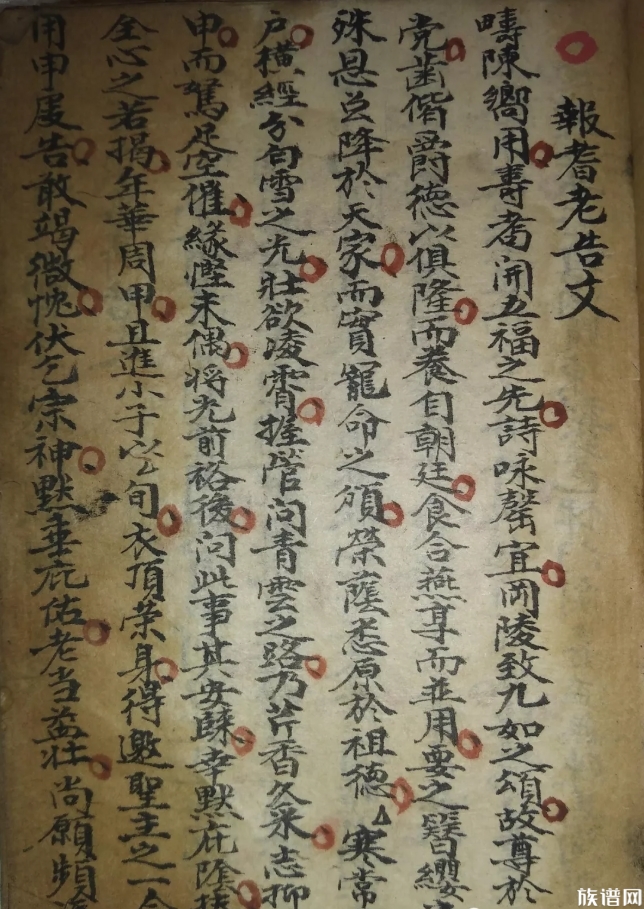 報耆老告文
疇陳嚮用壽者開五福之先詩咏罄宜岡陵致九如之頌故尊於
党歯偕爵德以俱隆而養自朝廷食合燕享而並用要之簪纓
殊恩总降於天家而實寵命之頒榮䕃悉原於祖德凡寒常
户橫經分句雪之光壮欲凌霄握管问青雲之路乃芹香久采志抑
申而駑足空催緣慳未偶将光前裕後问此事其安縣幸默庇陰
全心之若揭年華周甲且進小子以旬衣頂榮身得邀聖主之一
用申虔告敢竭微忱伏乞宗神默垂庇佑老当益壮尚願頻
族谱网